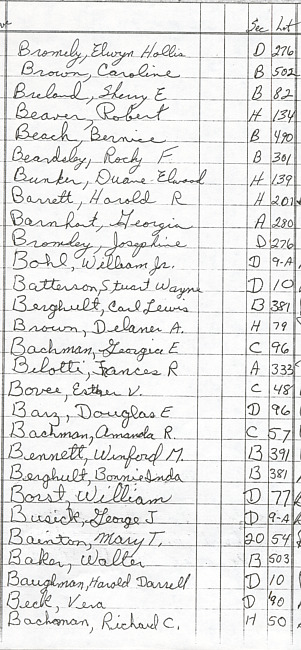 Sec Lot
Bromely, Elwyn Hollis D 276
Brown, Caroline B 502
Breland, Sherry E B 82
Beaver, Robert H 134
Beach, Bernice B 490
Beardsley, Rocky F. B 301
Bunker, Duane Elwood H 139
Barrett, Harold R H 201
Barnhart, Georgia A 280
Bromley, Josephine D 276
Bohl, William Jr. D 9-A
Batterson, Stuart Wayne D 10
Berghult, Carl Lewis B 381
Brown, Delaner A. H 79
Bachman, Georgia E C 96
Bilotti, Frances R A 333
Bovee, Esther V. C 48
Barz, Douglas E D 96
Bachman, Amanda R. C 57
Bennett, Winford M. B 391
Berghult, Bonnie Inda B 381
Borst, William D 77
Busick, George J D 9-A
Bainton, Mary T. 20 54
Baker, Walter B 503
Baughman, Harold Darrell D 10
Beck, Vera D 90
Bachman, Richard C. H 50